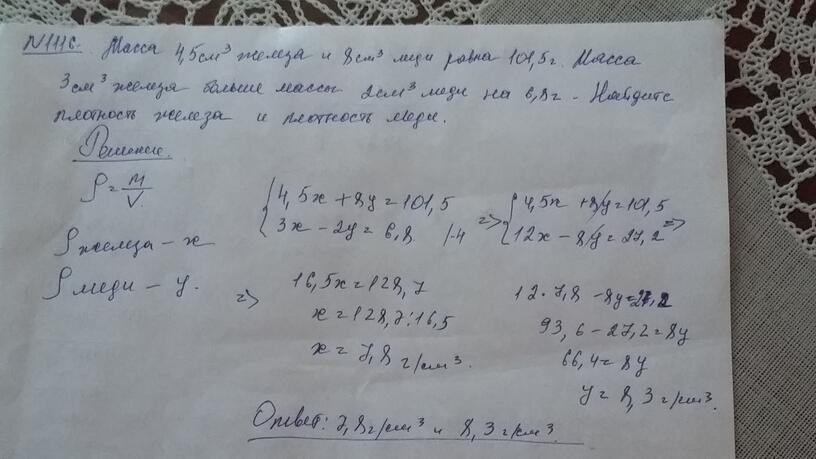 N 1116. Масса 4,5 см³ железа и 8 см³ меди равна 101,5 г. Масса
3 см³ железа больше массы 2 см³ меди на 6,8 г. Найдите
плотность железа и плотность меди.
Решение.
ρ = m/V.
ρ железа – x
ρ меди – y.
{4,5x + 8y = 101,5
3x – 2y = 6,8 |·4
=> {4,5x + 8y = 101,5
12x – 8y = 27,2 =>
=> 16,5x = 128,7
x = 128,7:16,5
x = 7,8 г/см³.
12·7,8 – 8y = 27,2
93,6 – 27,2 = 8y
66,4 = 8y
y = 8,3 г/см³.
Ответ: 7,8 г/см³ и 8,3 г/см³.